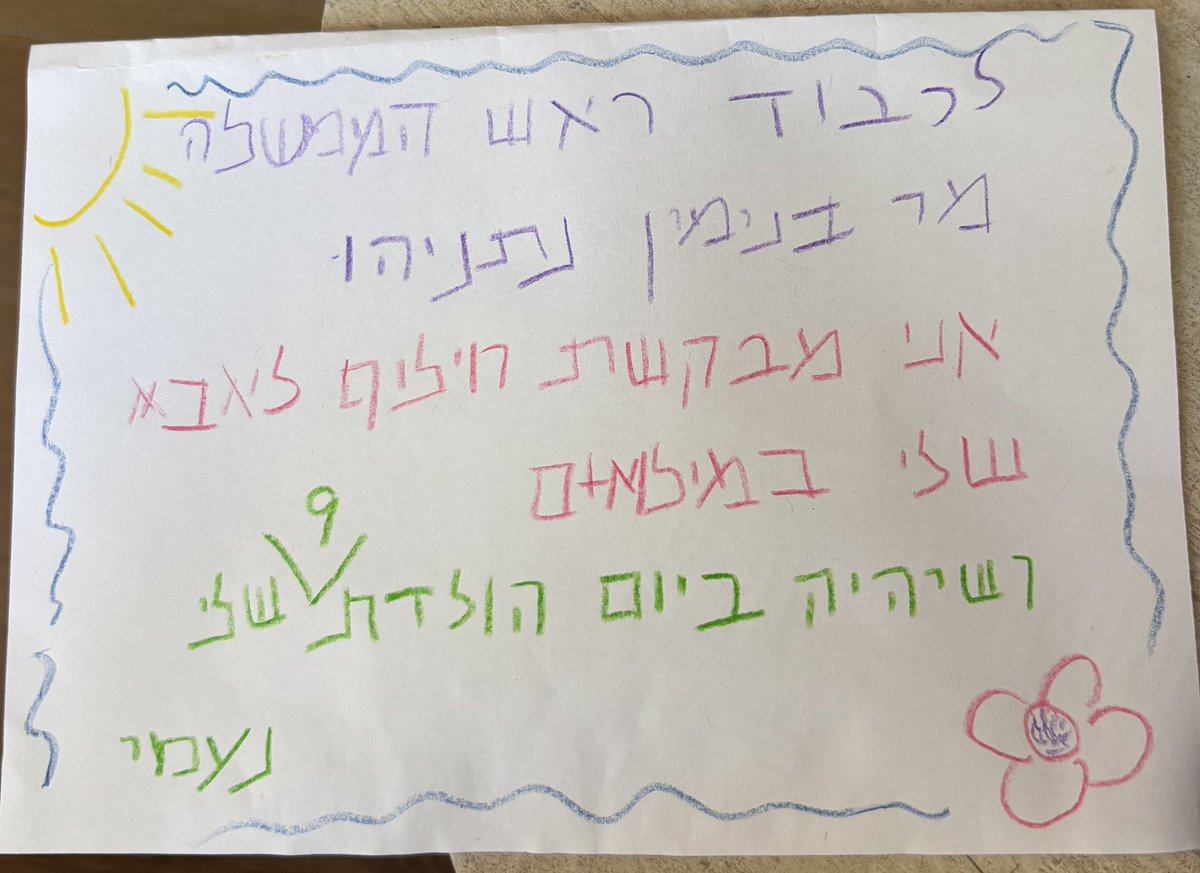 לכבוד ראש הממשלה
מר בנימין נתניהו
אני מבקשת חילים לאבא
שלי במילאים
ושיהיה ביום הולדת 9 שלי
נעמי